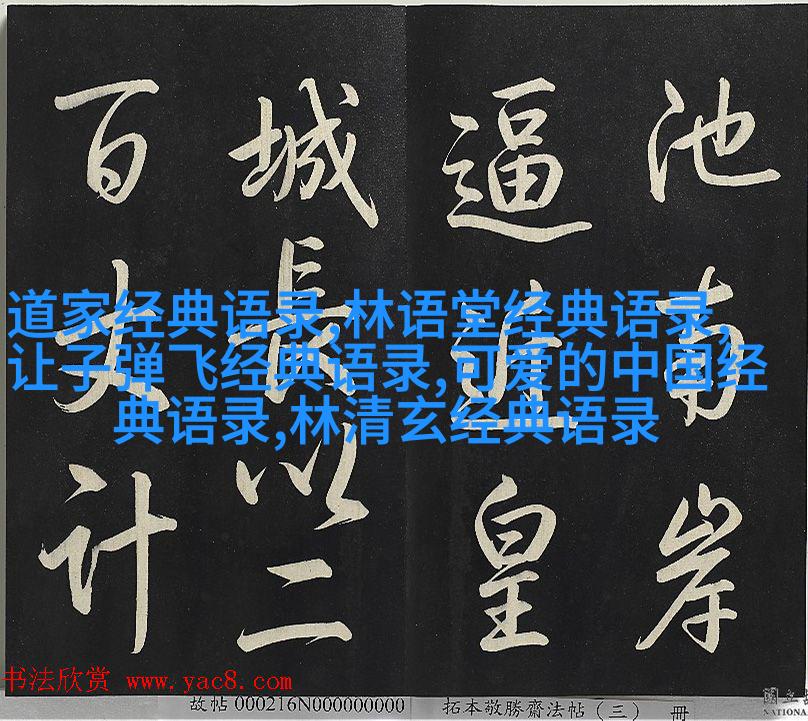 池南岸
逼近皇
城長以二
百丈計
道家经典语录,林语堂经典语录,
让子弹飞经典语录,可爱的中国经
典语录,林清玄经典语录
书法欣赏 www.yac8.com
故帖 000216N000000000
拓本敬勝齋法帖（三） 冊
國立
NATIONA